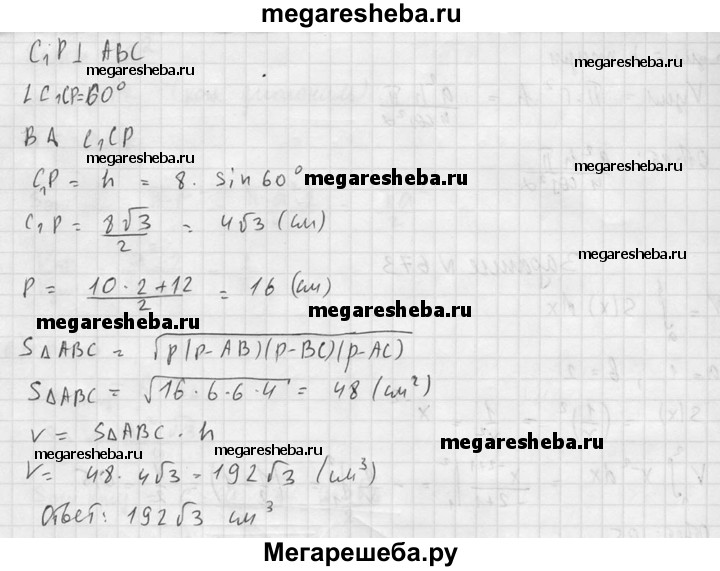 megaresheba.ru
C₁P⊥ ABC
megaresheba.ru megaresheba.ru
∠C₁CP=60°
B A C₁CP
C₁P = h = 8 · sin 60° megaresheba.ru
C₁P = 8√3/2 = 4√3 (см)
P = (10 · 2 + 12)/2 = 16 (см)
megaresheba.ru
megaresheba.ru
S△ABC = √p(p-AB)(p-BC)(p-AC)
S△ABC = √16·6·6·4 = 48 (см²)
V = S△ABC · h
megaresheba.ru
megaresheba.ru megaresheba.ru
V = 48 · 4√3 = 192√3 (см³)
Ответ: 192√3 см³
Мегарешеба.ру